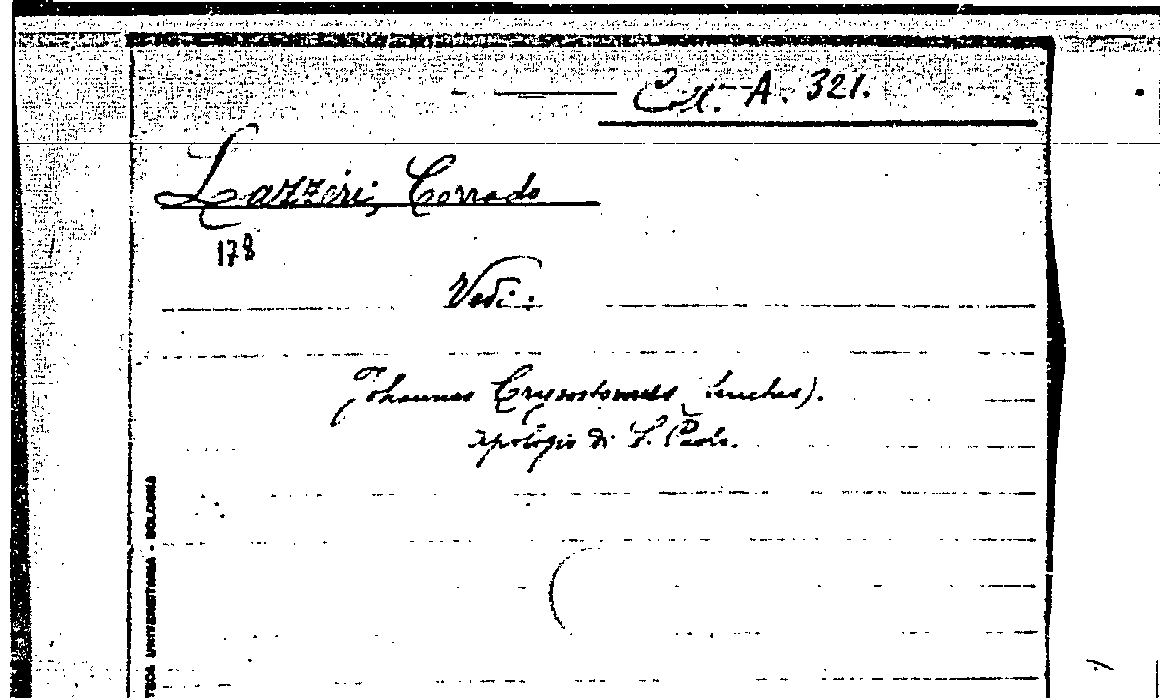 Coll. A. 321.
Lazzeri, Corrado
178
Vedi:
Johannes Crysostomus (Sanctus).
Apologia di S. Paolo.
TECA UNIVERSITARIA - BOLOGNA